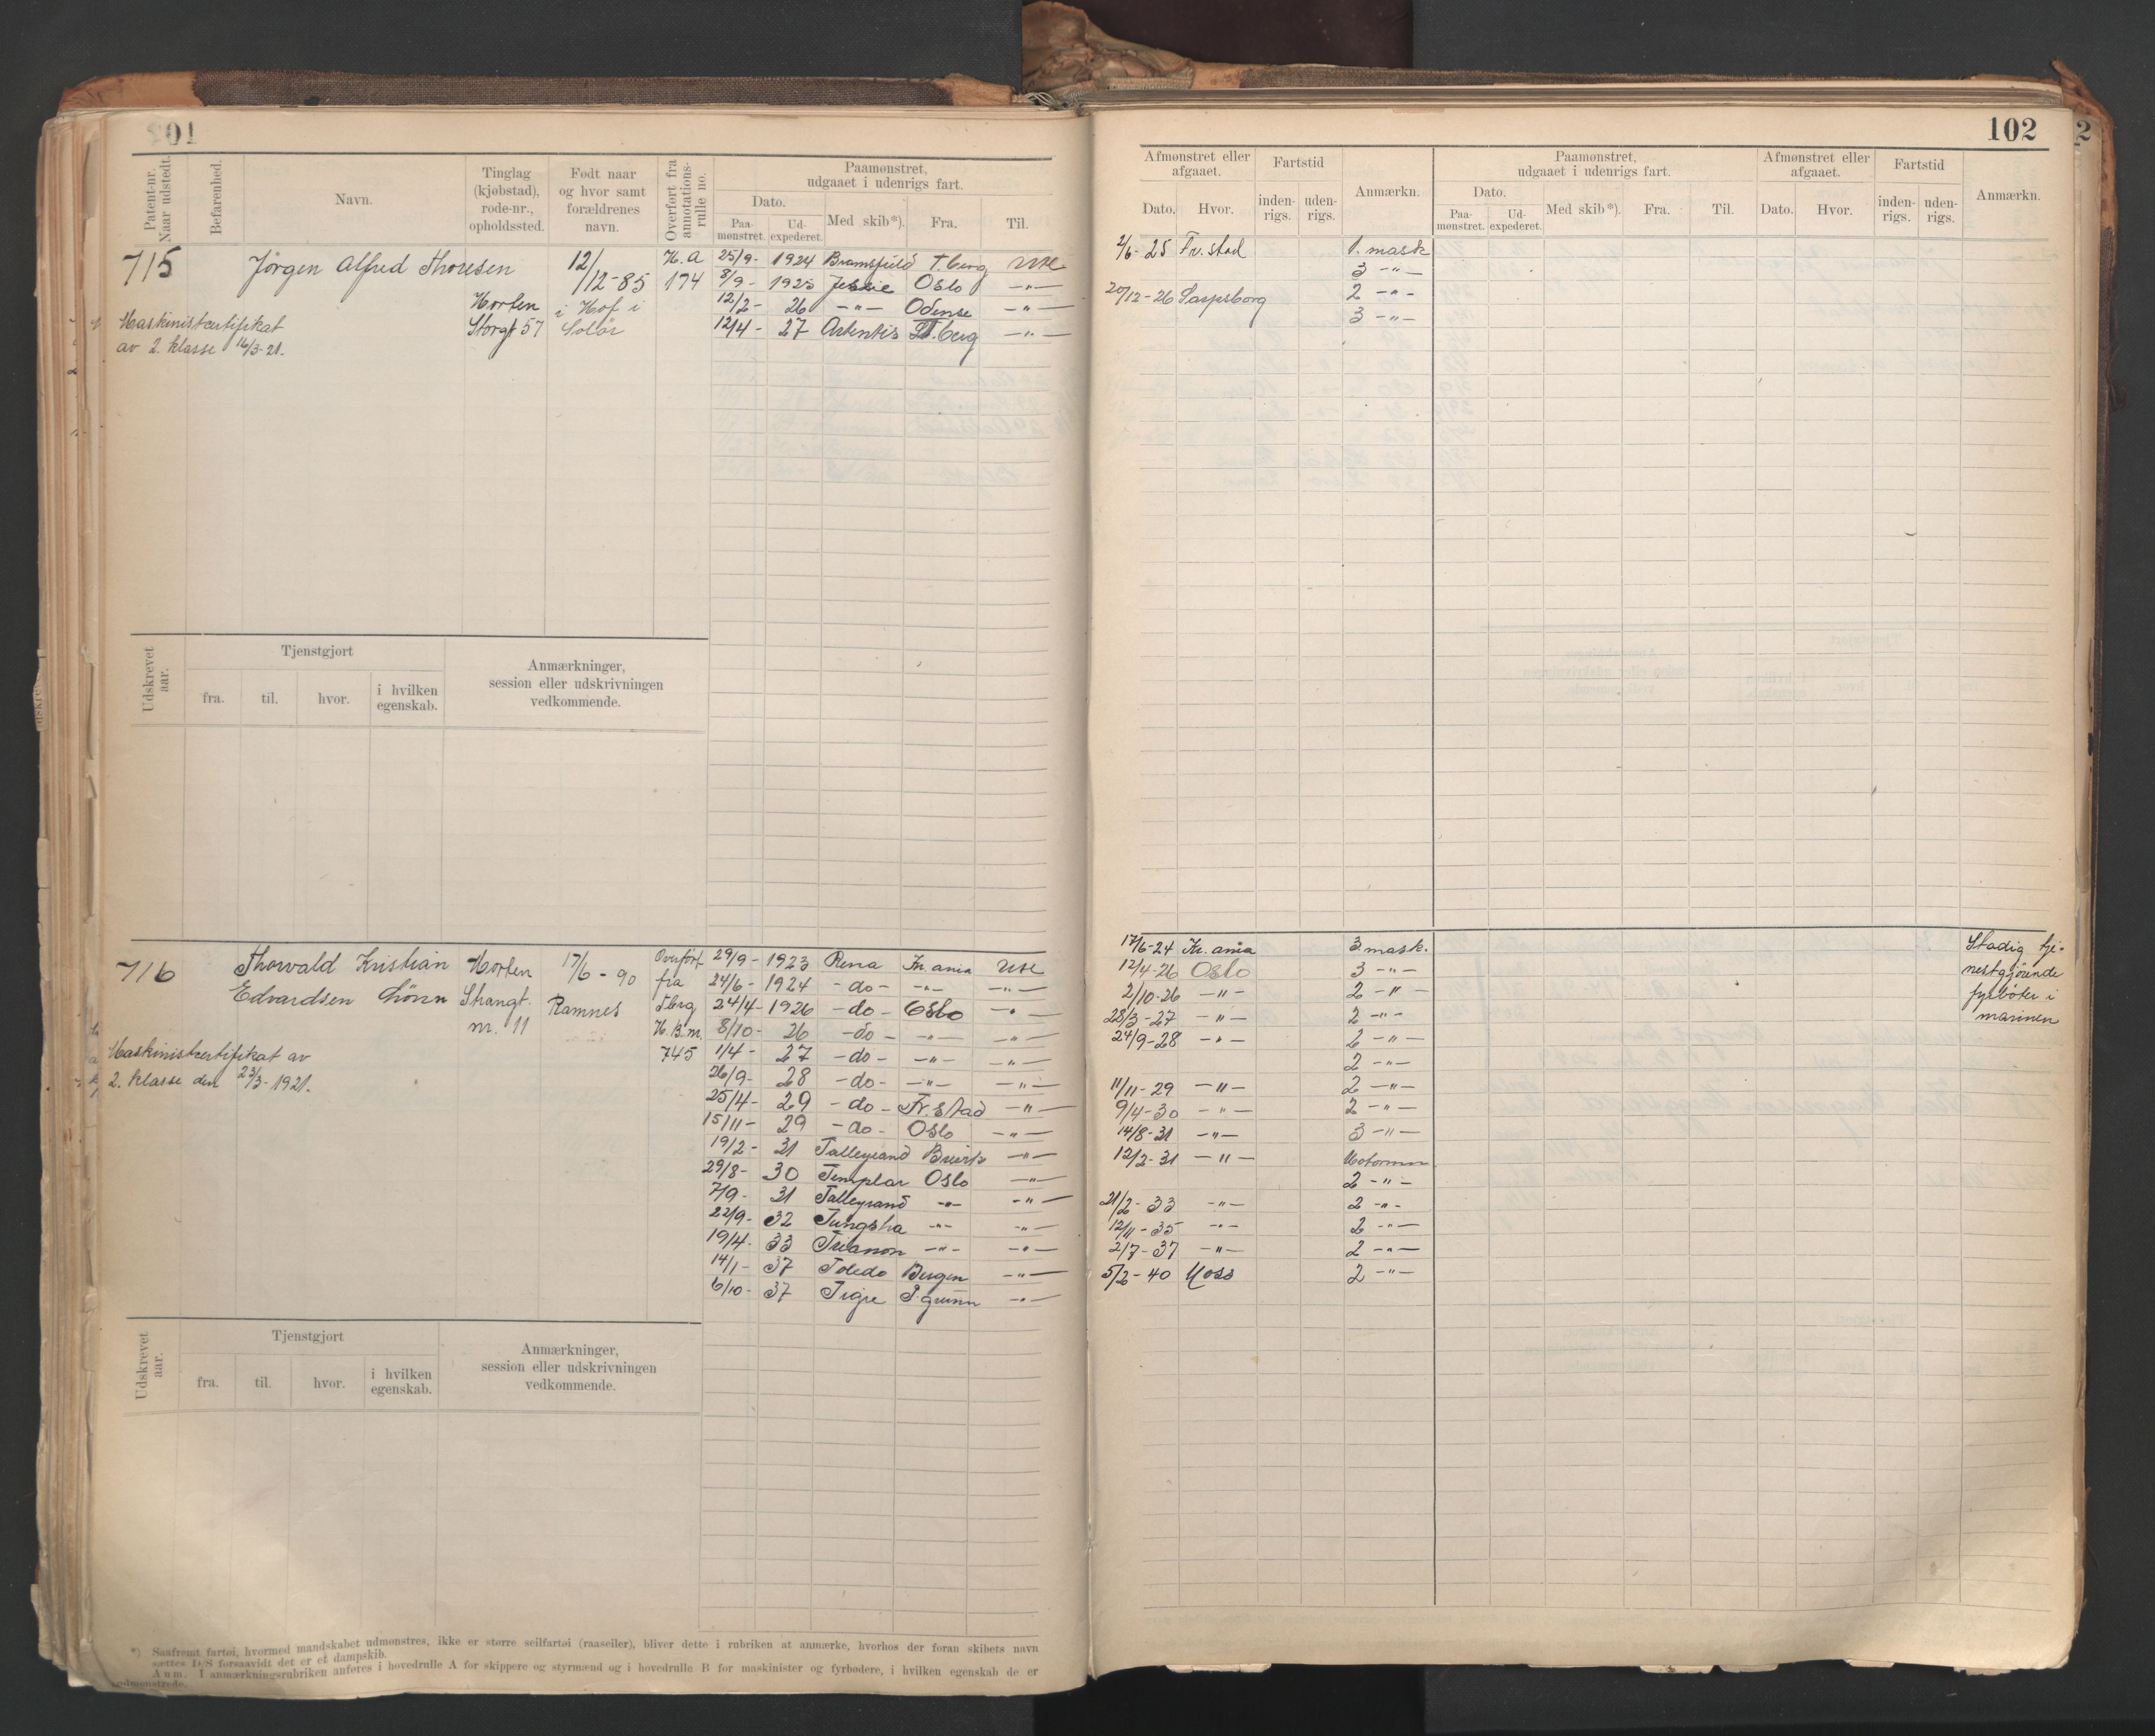 102
Patent-nr. Naar udstedt.
Befarenhed.
Navn.
Tinglag (kjøbstad), rode-nr., opholdssted.
Født naar og hvor samt forældrenes navn.
Overført fra annotations-rulle no.
Paamønstret, udgaaet i udenrigs fart.
Dato.
Paa-mønstret.
Ud-expederet.
Med skib*).
Fra.
Til.
Afmønstret eller afgaaet.
Dato.
Hvor.
Fartstid
inden-rigs.
uden-rigs.
Anmærkn.
Paamønstret, udgaaet i udenrigs fart.
Dato.
Paa-mønstret.
Ud-expederet.
Med skib*).
Fra.
Til.
Afmønstret eller afgaaet.
Dato.
Hvor.
Fartstid
inden-rigs.
uden-rigs.
Anmærkn.
715
Jörgen Alfred Thoresen
Horten
Storgt 57
12/12-85
i Hof i
Solör
H.a
174
Maskinistcertifikat
av 2. klasse 16/3-21.
25/9- 1924 Bramsfield T.berg Use
8/9- 1925 Jessie Oslo -"-
12/2- 26 -"- Odense -"-
12/4- 27 T.berg -"-
2/6-25 Fr.stad 1. mask
3 -"-
20/12-26 Sarpsborg 2 -"-
3 -"-
Udskrevet aar.
Tjenstgjort
fra.
til.
hvor.
i hvilken egenskab.
Anmærkninger, session eller udskrivningen vedkommende.
716
Thorvald Kristian
Edvardsen Lönn
Horten
Strangt.
nr. 11
17/6-90
Ramnes
Overfört
fra
Tbrg
H.B.m.
745
Maskinistcertifikat av
2. klasse den 23/3-1921.
29/9- 1923 Rena Kr.ania Use
24/6- 1924 -do- -"- -"-
24/4- 1926 -do- Oslo -"-
8/10- 26 -do- -"- -"-
1/4- 27 -do- -"- -"-
26/9- 28 -do- -"- -"-
25/4- 29 -do- Fr.stad -"-
15/11- 29 -do- Oslo -"-
19/2- 31 Talleyrand Brevik -"-
29/8- 30 Templar Oslo -"-
7/9- 31 Talleyrand -"- -"-
22/9- 32 Tungsha -"- -"-
19/4- 33 Trianon -"- -"-
14/1- 37 Toledo Bergen -"-
6/10- 37 Tigre P.grunn -"-
17/6-24 Kr.ania 3 mask.
12/4-26 Oslo 3 -"-
2/10-26 -"- 2 -"-
28/3-27 -"- 2 -"-
24/9-28 -"- 2 -"-
2 -"-
11/11-29 -"- 2 -"-
9/4-30 -"- 2 -"-
14/8-31 -"- 3 -"-
12/2-31 -"- Motorman
2 -"-
21/2-33 -"- 2 -"-
12/11-35 -"- 2 -"-
2/7-37 -"- 2 -"-
5/2-40 Moss 2 -"-
Stadig tje-
nestgjörende
fyrböter i
marinen
Udskrevet aar.
Tjenstgjort
fra.
til.
hvor.
i hvilken egenskab.
Anmærkninger, session eller udskrivningen vedkommende.
*) Saafremt fartøi, hvormed mandskabet udmønstres, ikke er større seilfartøi (raaseiler), bliver dette i rubriken at anmærke, hvorhos der foran skibets navn
sættes D/S forsaavidt det er et dampskib.
Anm. I anmærkningsrubriken anføres i hovedrulle A for skippere og styrmænd og i hovedrulle B for maskinister og fyrbødere, i hvilken egenskab de er
udmønstrede.